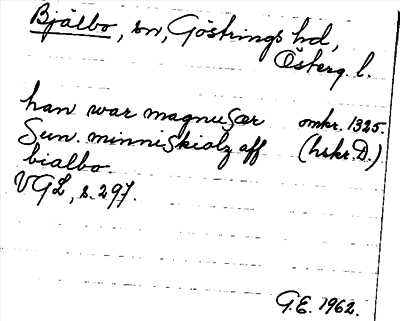 Bjälbo, sn, Göstrings hd,
Österg. l.
han war magnusær omkr. 1325.
sun. minniskiolz aff (hskr. D.)
bialbo.
VGL, s. 297.
G.E. 1962.